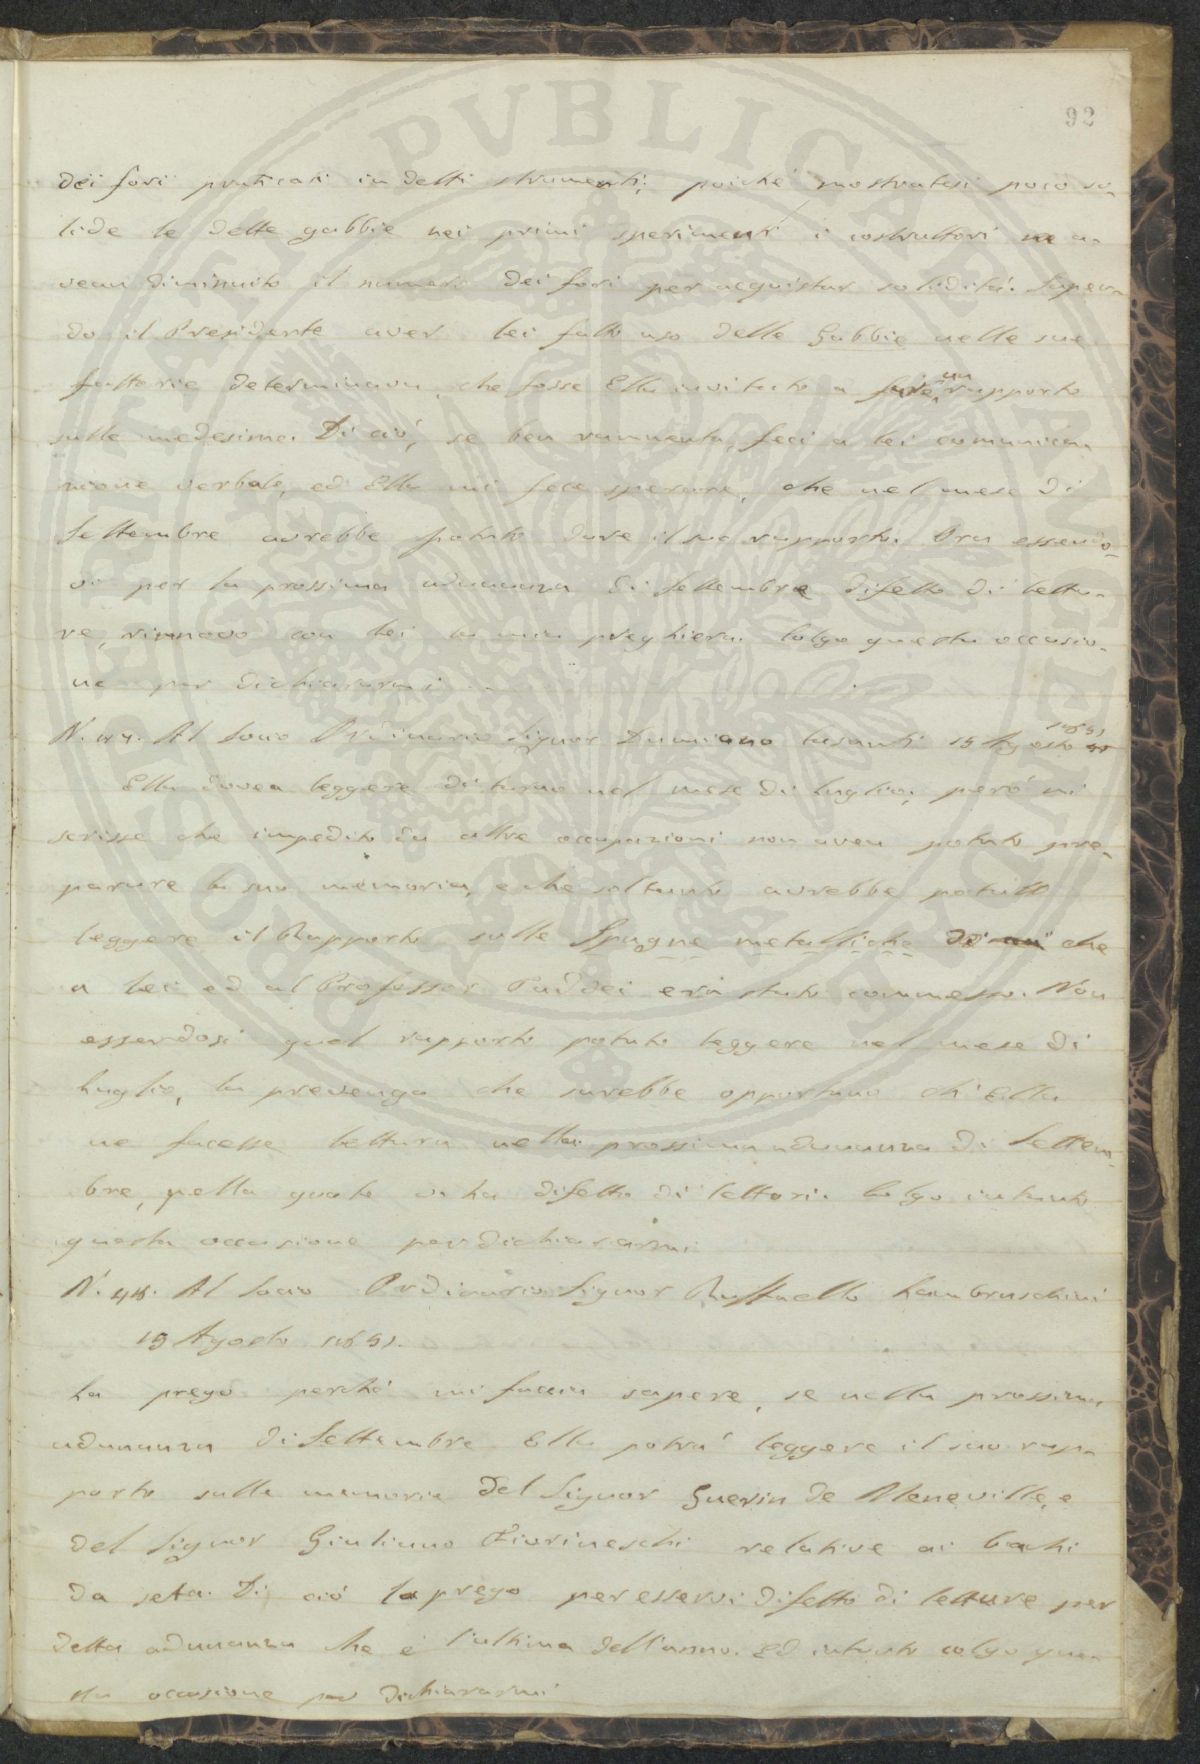 92
dei fori praticati in detti strumenti; poiché mostratesi poco so-
lide le dette gabbie nei primi sperimenti i costruttori ne a-
vean diminuito il numero dei fori per acquistar solidità. Sapen-
do il Presidente aver lei fatto uso delle Gabbie nelle sue
fattorie determinava, che fosse Ella invitato a fare un rapporto
sulle medesime. Di ciò, se ben rammenta, feci a lei comunica-
zione verbale, ed Ella mi fece sperare, che nel mese di
Settembre avrebbe potuto dare il suo rapporto. Ora essendo-
vi per la prossima adunanza di Settembre difetto di lettu-
re, rinnovo con lei la mia preghiera. Colgo questa occasio-
ne per dichiararmi
N. 47. Al Socio Ordinario Signor Damiano Casanti 15 Agosto 1851
Ella dovea leggere di turno nel mese di luglio; però mi
scrisse che impedito da altre occupazioni non avea potuto pre-
parare la sua memoria, e che soltanto avrebbe potuto
leggere il Rapporto sulle Spugne metalliche di che
a lei ed al Professor Puddei era stato commesso. Non
essendosi quel rapporto potuto leggere nel mese di
luglio, la prevengo che sarebbe opportuno ch'Ella
ne facesse lettura nella prossima adunanza di Settem-
bre, nella quale vi ha difetto di lettori. Colgo intanto
questa occasione per dichiararmi
N. 48. Al Socio Ordinario Signor Raffaello Lambruschini
15 Agosto 1851.
La prego perché mi faccia sapere, se nella prossima
adunanza di Settembre Ella potrà leggere il suo rap-
porto sulle memorie del Signor Guerin de Meneville, e
del Signor Giuliano Fiorineschi relative ai bachi
da seta. Di ciò la prego per esservi difetto di letture per
detta adunanza che è l'ultima dell'anno. Ed intanto colgo que-
sta occasione per dichiararmi
PROSPERITATI PVBLICAE AVGENDAE